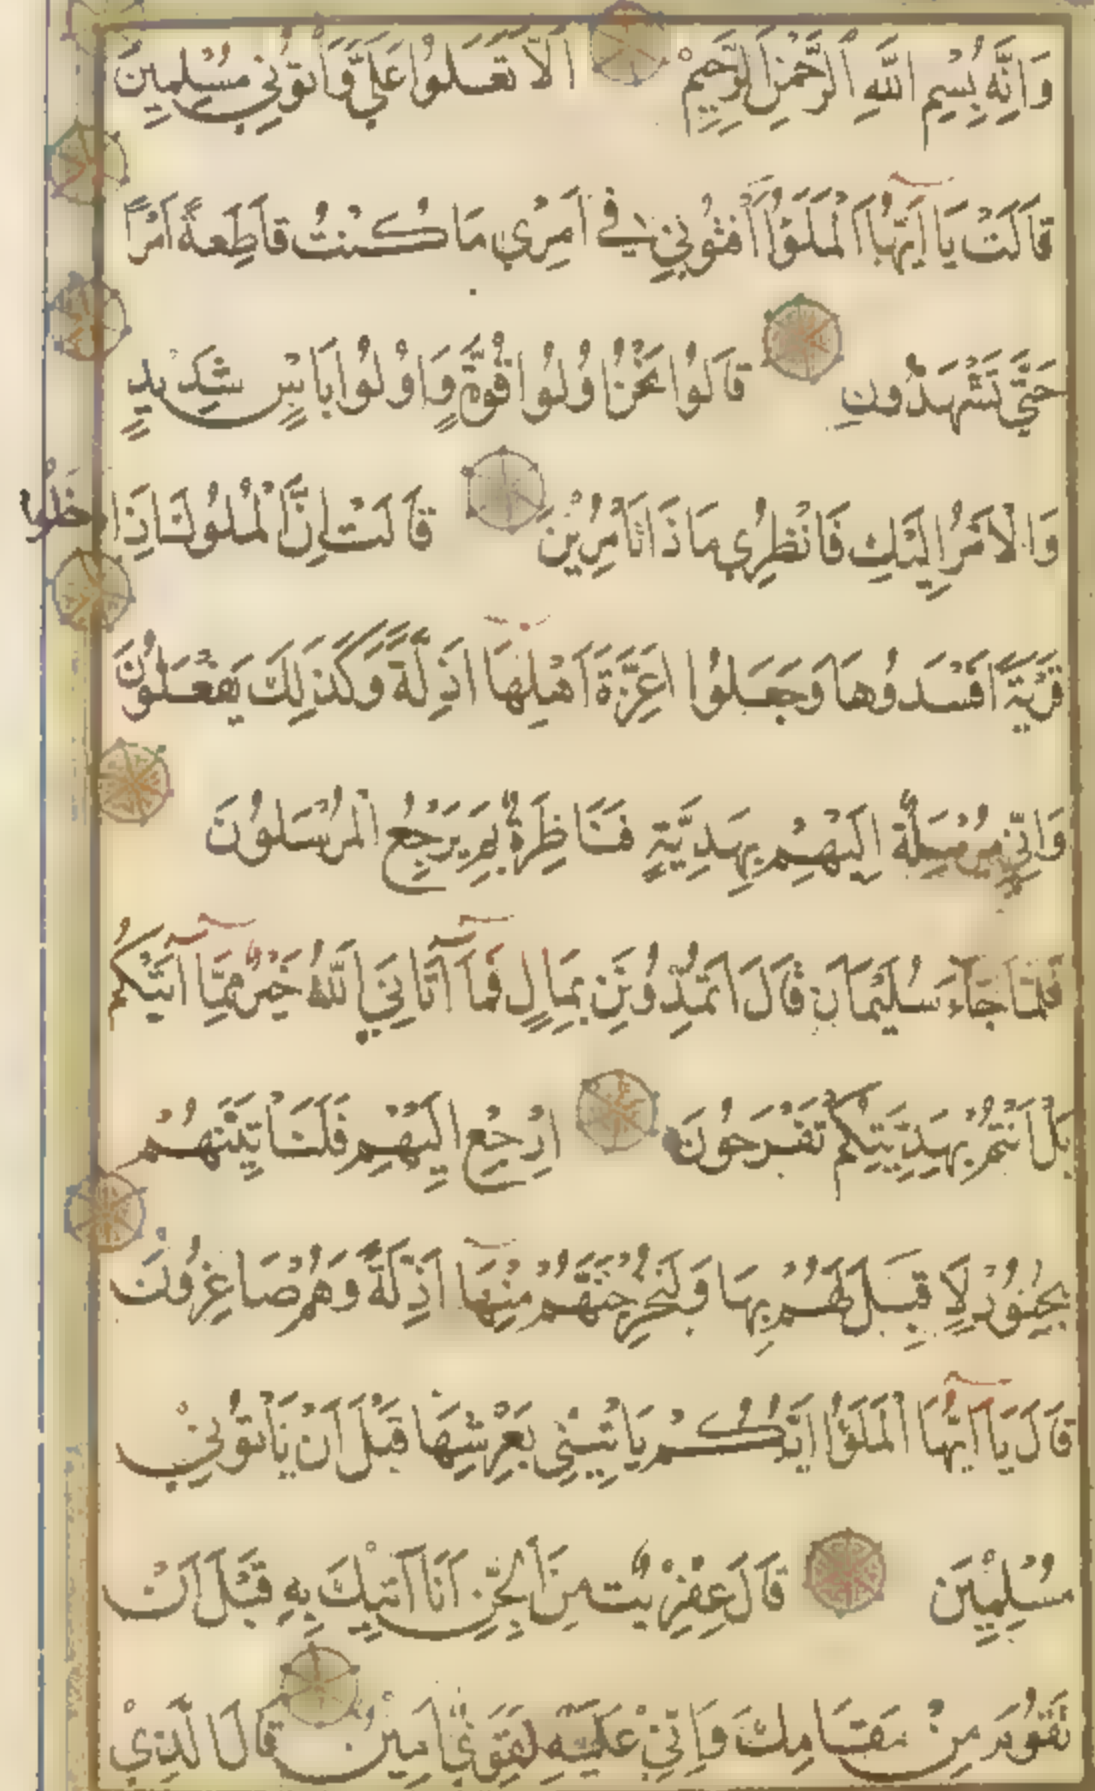 وَاِنَّهُ بِسْمِ اللّٰهِ الرَّحْمٰنِ الرَّحِيْمِ اَلَّا تَعْلُوْا عَلَيَّ وَأْتُوْنِي مُسْلِمِيْنَ
قَالَتْ يَا اَيُّهَا الْمَلَؤُا اَفْتُوْنِيْ فِي اَمْرِي مَا كُنْتُ قَاطِعَةً اَمْرًا
حَتّٰي تَشْهَدُوْنِ قَالُوْا نَحْنُ اُولُوْا قُوَّةٍ وَاُولُوْا بَاْسٍ شَدِيْدٍ
وَالْاَمْرُ اِلَيْكِ فَانْظُرِي مَاذَا تَاْمُرِيْنَ قَالَتْ اِنَّ الْمُلُوْكَ اِذَا دَخَلُوا
قَرْيَةً اَفْسَدُوْهَا وَجَعَلُوْا اَعِزَّةَ اَهْلِهَا اَذِلَّةً وَكَذَلِكَ يَفْعَلُوْنَ
وَاِنِّي مُرْسِلَةٌ اِلَيْهِمْ بِهَدِيَّةٍ فَنَاظِرَةٌ بِمَ يَرْجِعُ الْمُرْسَلُوْنَ
فَلَمَّا جَاءَ سُلَيْمَانَ قَالَ اَتُمِدُّوْنَنِ بِمَالٍ فَمَا آتَانِيَ اللّٰهُ خَيْرٌ مِمَّا آتَيٰكُمْ
بَلْ اَنْتُمْ بِهَدِيَّتِكُمْ تَفْرَحُوْنَ اِرْجِعْ اِلَيْهِمْ فَلَنَاْتِيَنَّهُمْ
بِجُنُوْدٍ لَا قِبَلَ لَهُمْ بِهَا وَلَنُخْرِجَنَّهُمْ مِنْهَا اَذِلَّةً وَهُمْ صَاغِرُوْنَ
قَالَ يَا اَيُّهَا الْمَلَؤُا اَيُّكُمْ يَاْتِيْنِي بِعَرْشِهَا قَبْلَ اَنْ يَاْتُوْنِيْ
مُسْلِمِيْنَ قَالَ عِفْرِيْتٌ مِنَ الْجِنِّ اَنَا آتِيْكَ بِهِ قَبْلَ اَنْ
تَقُوْمَ مِنْ مَقَامِكَ وَاِنِّيْ عَلَيْهِ لَقَوِيٌّ اَمِيْنٌ قَالَ الَّذِيْ